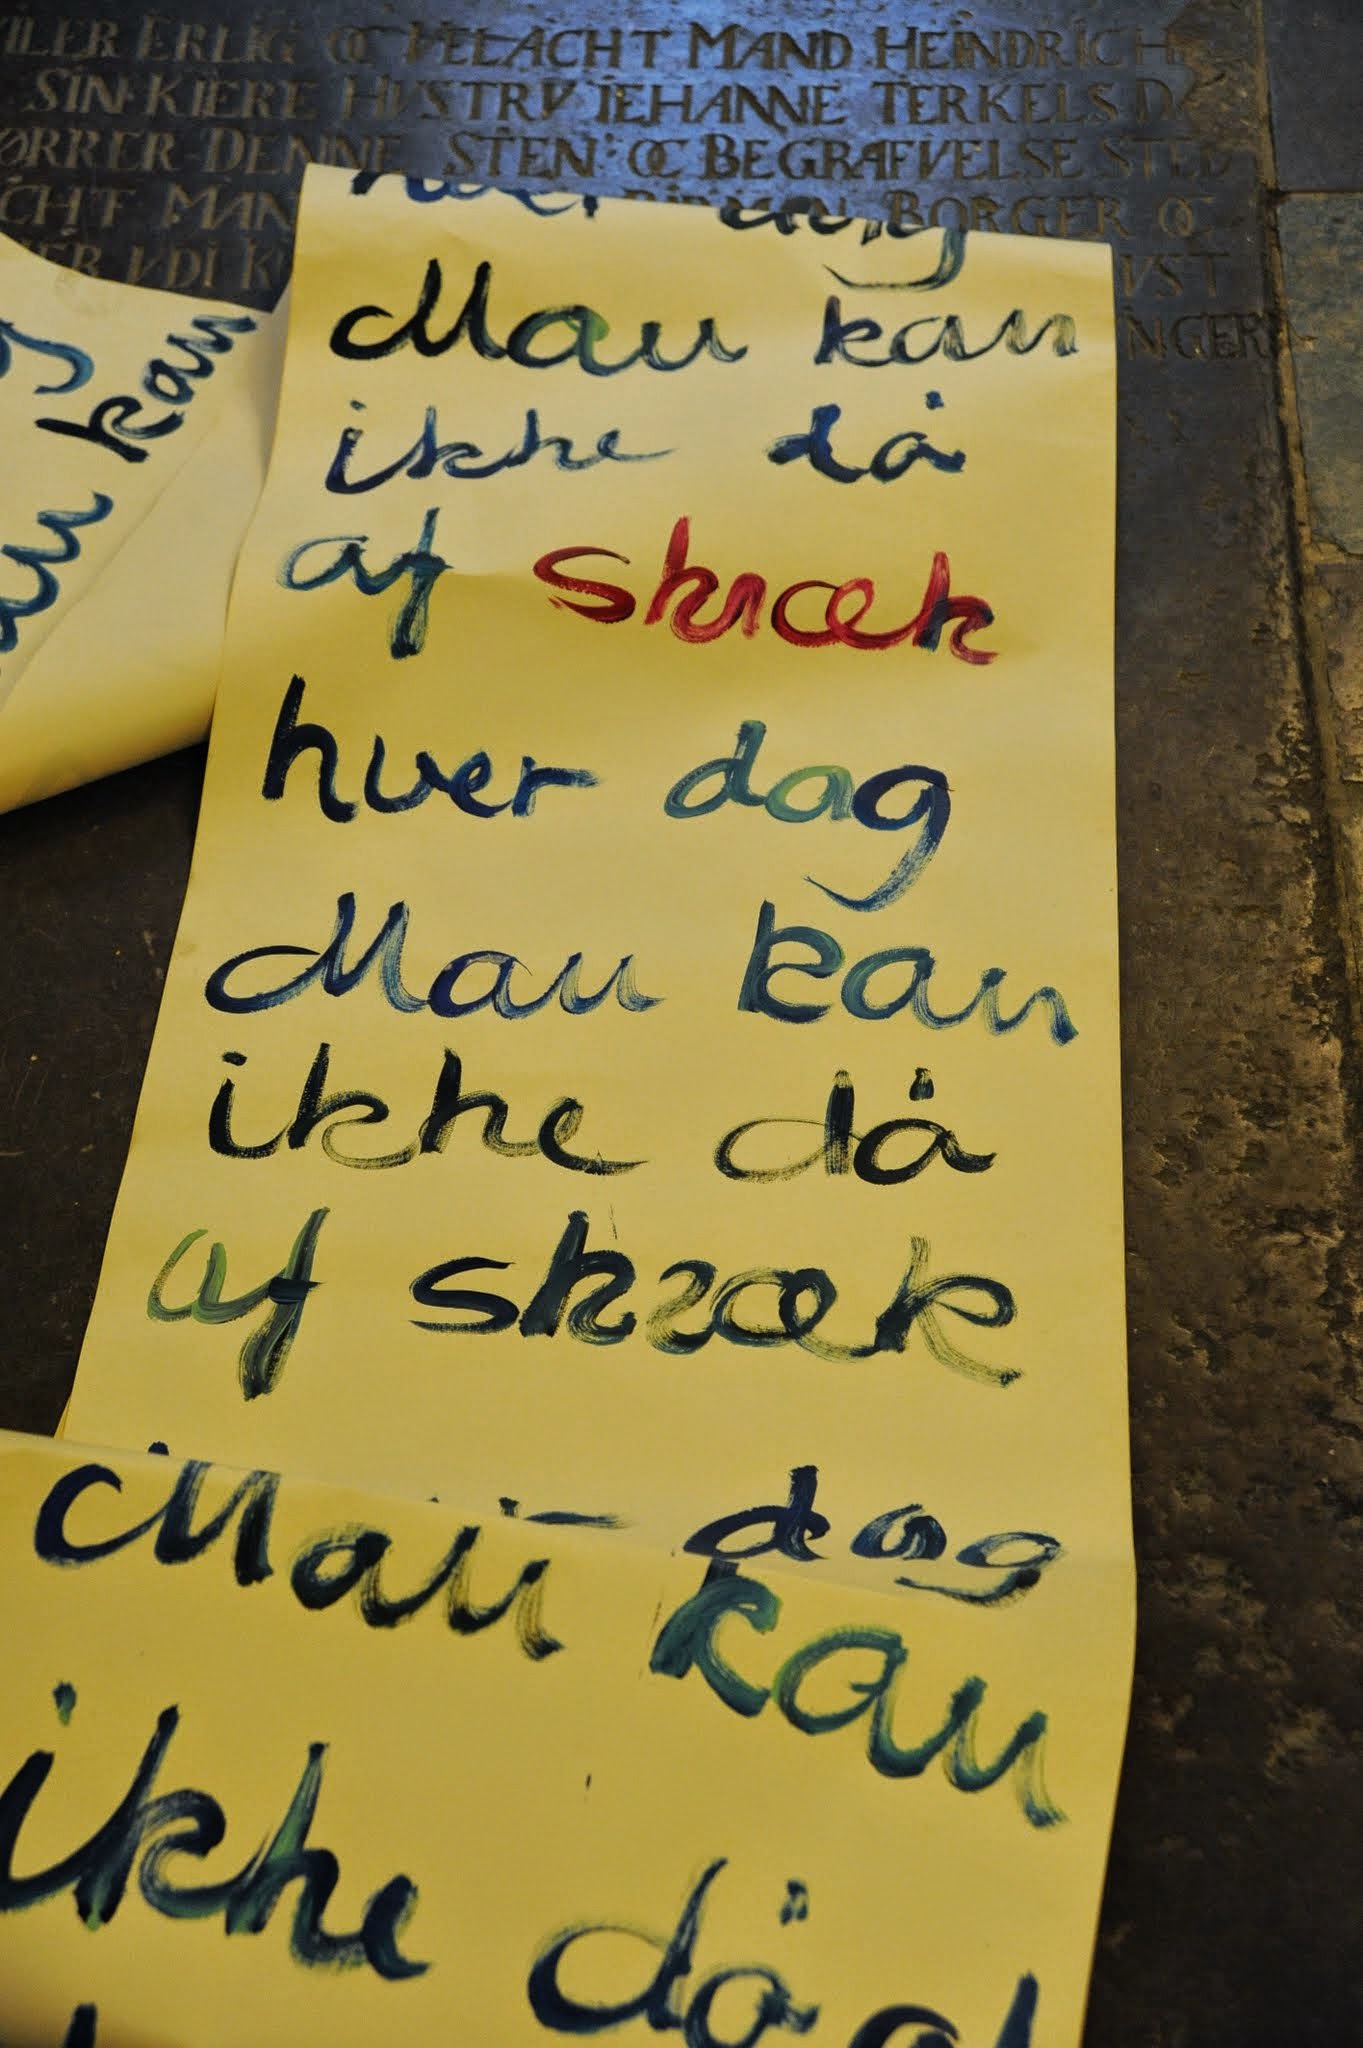 ILER ERLIG OC VELACHT MAND HEINDRICH
SIN KIERE HVSTRV IEHANNE TERKELS D
ØRRER DENNE STEN OC BEGRAFVELSE STED
CHT MAN BORGER OC
ER VDI K VST
NGER
hver dag
Man kan
ikke då
af skræk
hver dag
Man kan
ikke då
af skræk
dag
Man kan
ikke då
af
kan